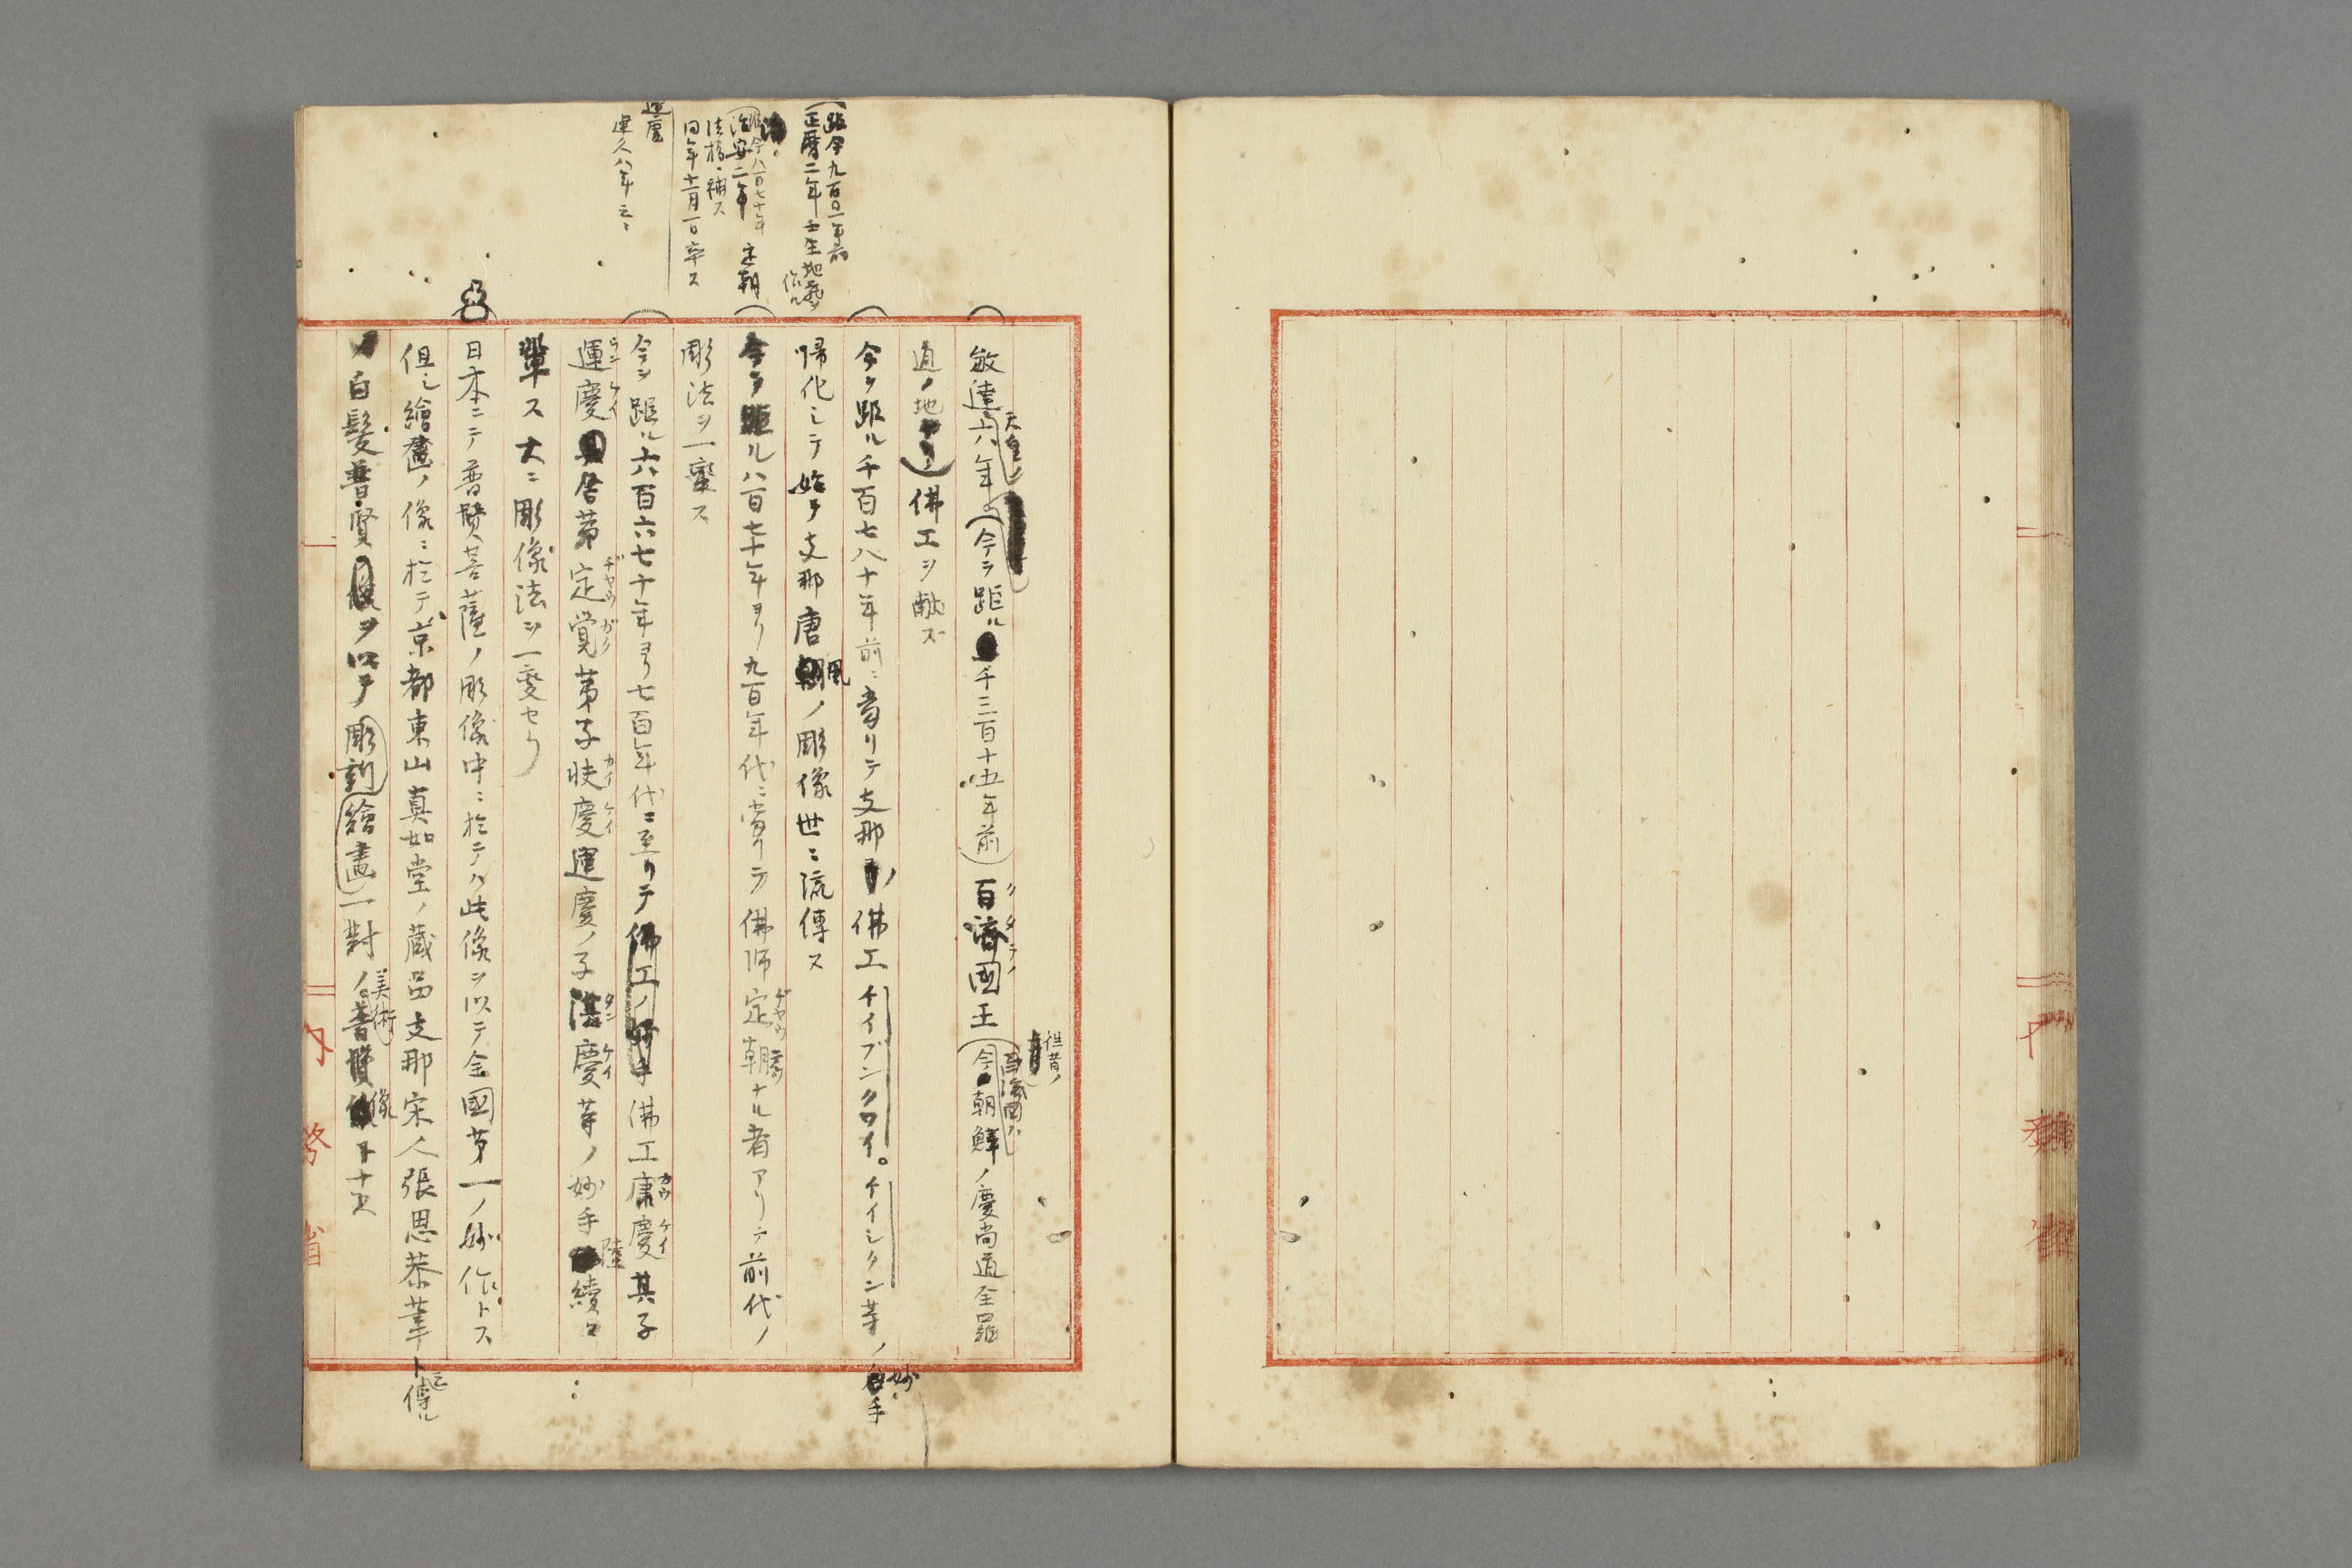 距今九百〇一年前
正暦二年壬生地蔵ヲ
作ル
距今八百七十年
治安二年 定朝
法橋ニ補ス
同年十一月一日卒ス
運慶
建久八年云々
敏達天皇ノ六年(今ヲ距ル千三百十五年前)百済國王(今朝鮮ノ慶尚道全羅
クダラノ
往昔ノ
道ノ地)佛工ヲ献ズ
今ヲ距ル千百七八十年前ニ當リテ支那ノ佛工チイブンクワイ。ケイシクン等ノ妙手
帰化シテ始テ支那唐風ノ彫像世ニ流傳ス
今ヲ距ル八百七十年ヨリ九百年代ニ當リテ佛師定朝ナル者アリテ前代ノ
ヂヤウ
彫法ヲ一變ス
今ヲ距ル六百六七十年ヨリ七百年代ニ至リテ佛工ノ妙手佛工康慶其子
カウ ケイ
運慶
ウン ケイ
定覚弟子快慶運慶ノ子湛慶等ノ妙手陸續
ヂヤウ ガク
カイ ケイ
タン ケイ
輩ス大ニ彫像法ヲ一変セリ
日本ニテ普賢菩薩ノ彫像中ニ於テハ此像ヲ以テ全國第一ノ妙作トス
但シ繪畫ノ像ニ於テ京都東山真如堂ノ蔵品支那宋人張思恭筆ト云傳ル
ノ白髪普賢ヲ以テ彫刻繪畫一對ノ美術
像トナス
内務省
内務省